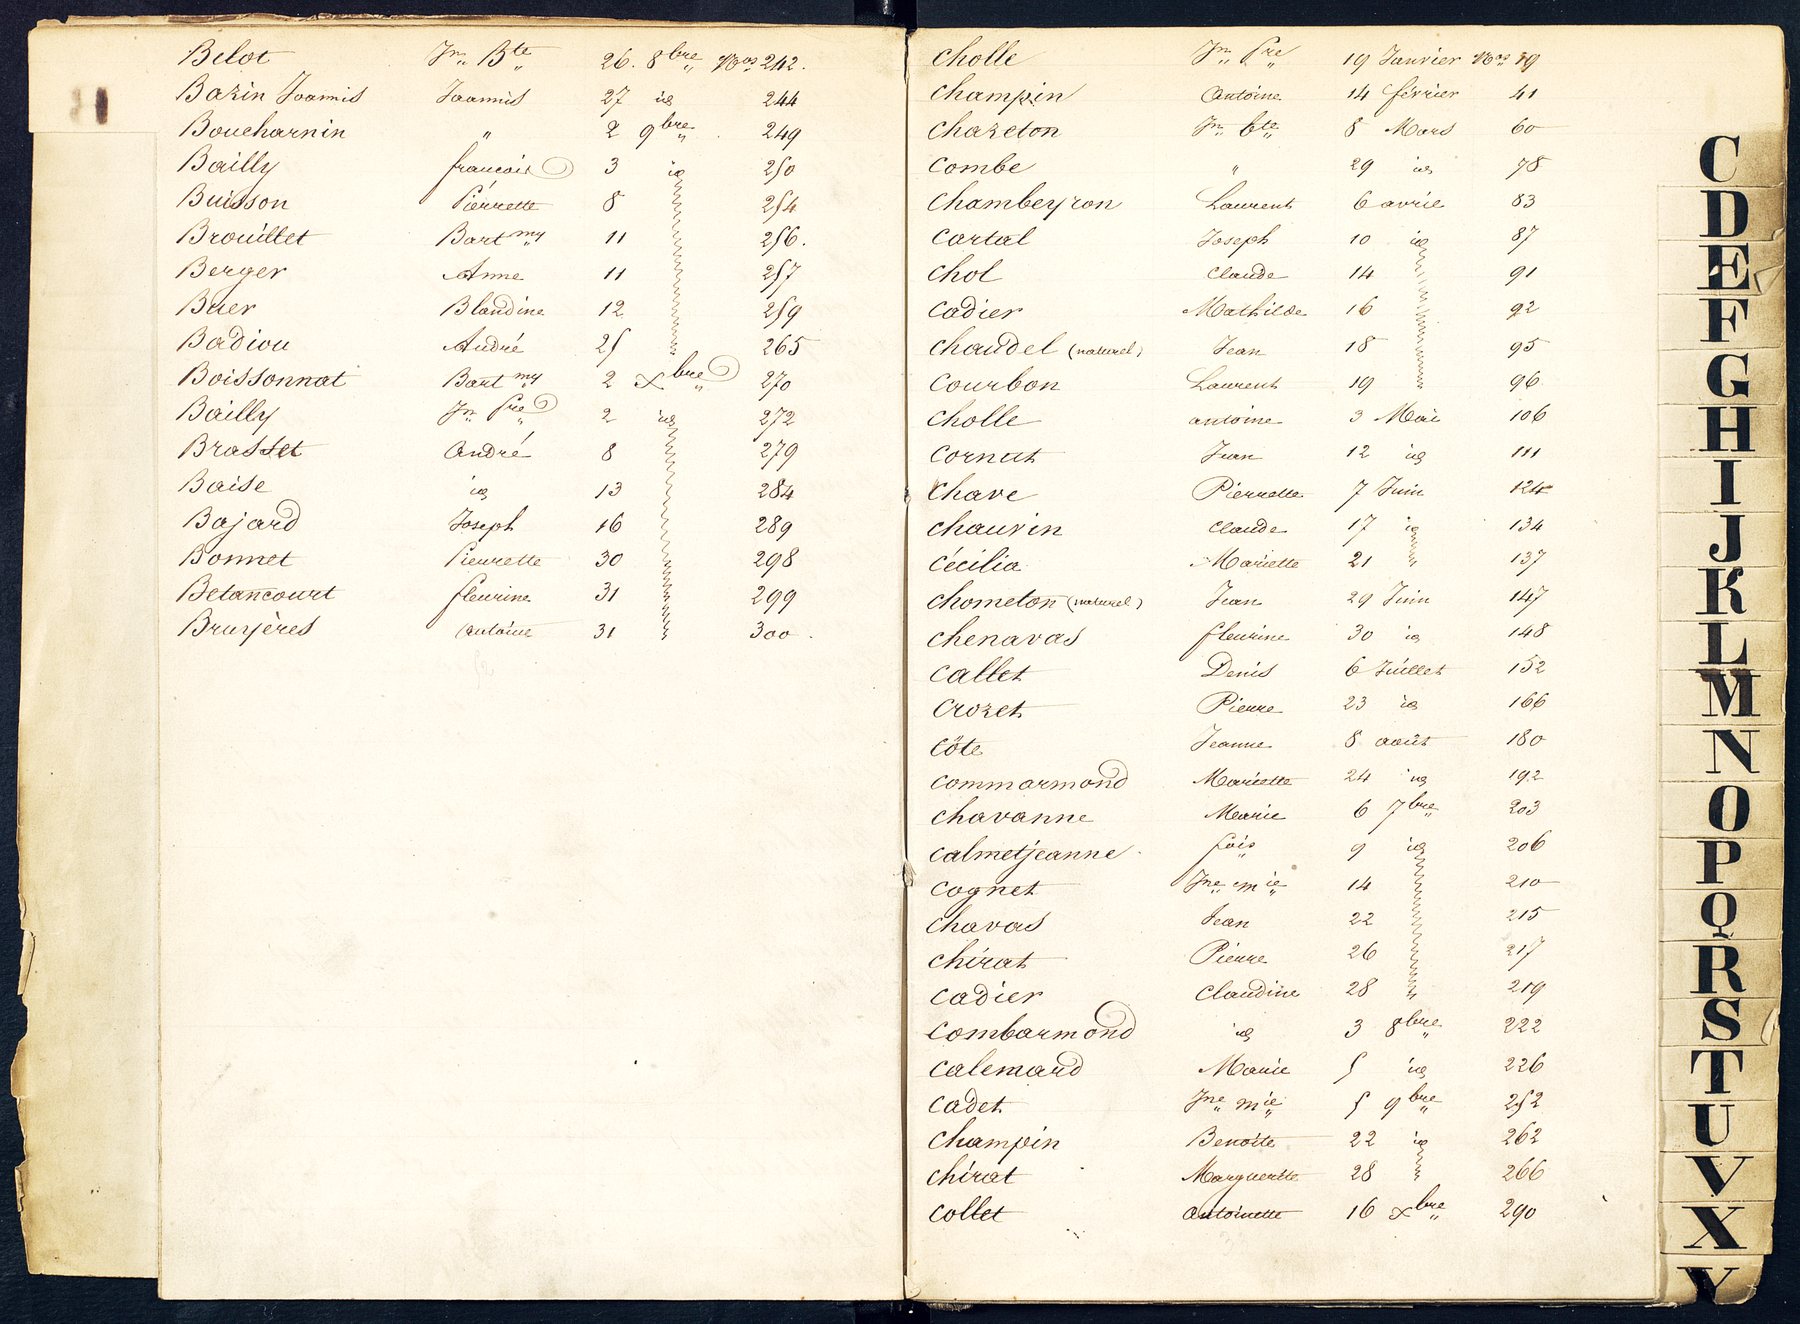 Belot Jn Bte 26. 8bre Nos 242.
Bazin Joannis Joannis 27 id 244
Boucharnin " 2 9bre 249
Bailly francois 3 id 250
Buisson Pierrette 8 " 254
Brouillet Bartmy 11 256.
Berger Anne 11 257
Buer Blandine 12 259
Badiou André 25 " 265
Boissonnat Bartmy 2 xbre 270
Bailly Jn Pre 2 id 272
Brasset André 8 279
Baise id 13 284
Bajard Joseph 16 289
Bonnet Pierrette 30 298
Betancourt fleurine 31 299
Bruyères antoine 31 " 300.
Cholle Jn Pre 19 Janvier Nos 19
Champin Antoine 14 février 41
Chazeton Jn bte 8 Mars 60
Combe " 29 id 78
Chambeyron Laurent 6 avril 83
Cartal Joseph 10 id 87
Chol Claude 14 91
Cadier Mathilde 16 92
Chaudel (naturel) Jean 18 95
Courbon Laurent 19 " 96
Cholle antoine 3 Mai 106
Cornut Jean 12 id 111
Chave Pierrette 7 Juin 124
Chauvin Claude 17 id 134
Cécilia Mariette 21 " 137
Chometon (naturel) Jean 29 Juin 147
Chenavas fleurine 30 id 148
Callet Denis 6 Juillet 152
Crozet Pierre 23 id 166
Côte Jeanne 8 août 180
Commarmond Mariette 24 id 192
Chavanne Marie 6 7bre 203
Calmetjeanne fois 9 id 206
Cognet Jne mie 14 210
Chavas Jean 22 215
Chirat Pierre 26 217
Cadier Claudine 28 " 219
Combarmond id 3 8bre 222
Calemard Marie 5 id 226
Cadet Jne mie 5 9bre 252
Champin Benoite 22 id 262
Chirat Marguerite 28 " 266
Collet Antoinette 16 xbre 290
C
D
E
F
G
H
I
J
K
L
M
N
O
P
Q
R
S
T
U
V
X
Y